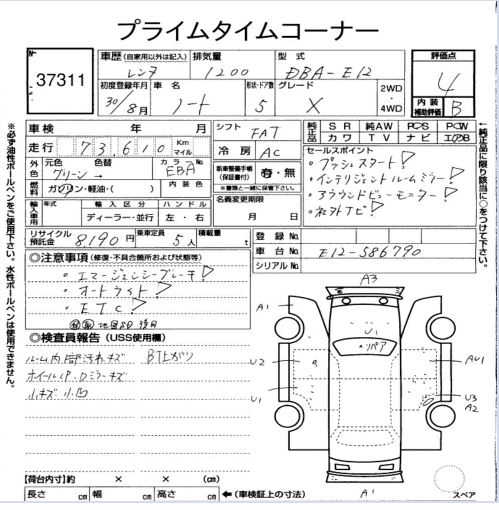 プライムタイムコーナー
No. 37311
車歴 (自家用以外は記入) レンタ
排気量 1200
型式 DBA-E12
評価点 4
内装補助評価 B
初度登録年月 30/8月
車名 ノート
形状・ドア数 5
グレード X
2WD
4WD
車検 年 月
走行 73,610 Km マイル
シフト FAT
冷房 AC
純正品 SR 純AW PS PW
カワ TV ナビ エアB
外色 元色 色替 グリーン →
カラーNo. EBA
内装色
燃料 ガソリン・軽油・( )
新車整備手帳(保証書付) 有・無
※書類と一緒に保管します。
セールスポイント
・プッシュスタート!
・インテリジェントルームミラー!
・アラウンドビューモニター!
・社外ナビ!
輸入車用 年式 輸入区分 ディーラー・並行
ハンドル 左・右
名義変更期限 月 日
リサイクル預託金 8190円
乗車定員 5人
積載量 t
登録No.
車台No. E12-586790
シリアルNo.
◎注意事項 (修復・不具合箇所および状態等)
・エマージェンシーブレーキ!
・オートライト!
・ETC!
地図SD
◎検査員報告 (USS使用欄)
ルーム内 部汚れキズ
ホイールCP、Dミラーキズ
小キズ 小凹
A3
A1
U1
リペア
U2
AU1
U1
U3
A2
A1
【荷台内寸】約 × × (cm)
長さ cm 幅 cm 高さ cm ←(車検証上の寸法)
スペア
※必ず油性ボールペンをご使用下さい。水性ボールペンは使用できません。
←純正品に限り該当に○をつけて下さい。